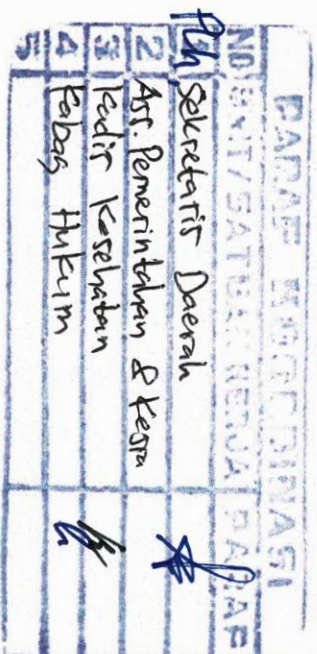 PARAF KOORDINASI
NO UNIT/SATUAN KERJA PARAF
Plh Sekretaris Daerah
2 Ass. Pemerintahan & Kesra
3 Kadis Kesehatan
4 Kabag Hukum
5